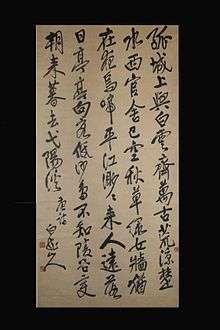 孤城上與白雲齊萬古荒涼楚
水西官舍已空秋草綠女牆猶
在夜烏啼平江渺々來人遠落
日亭亭向客低沙鳥不知陵谷變
朝來暮去弋陽溪 唐詩